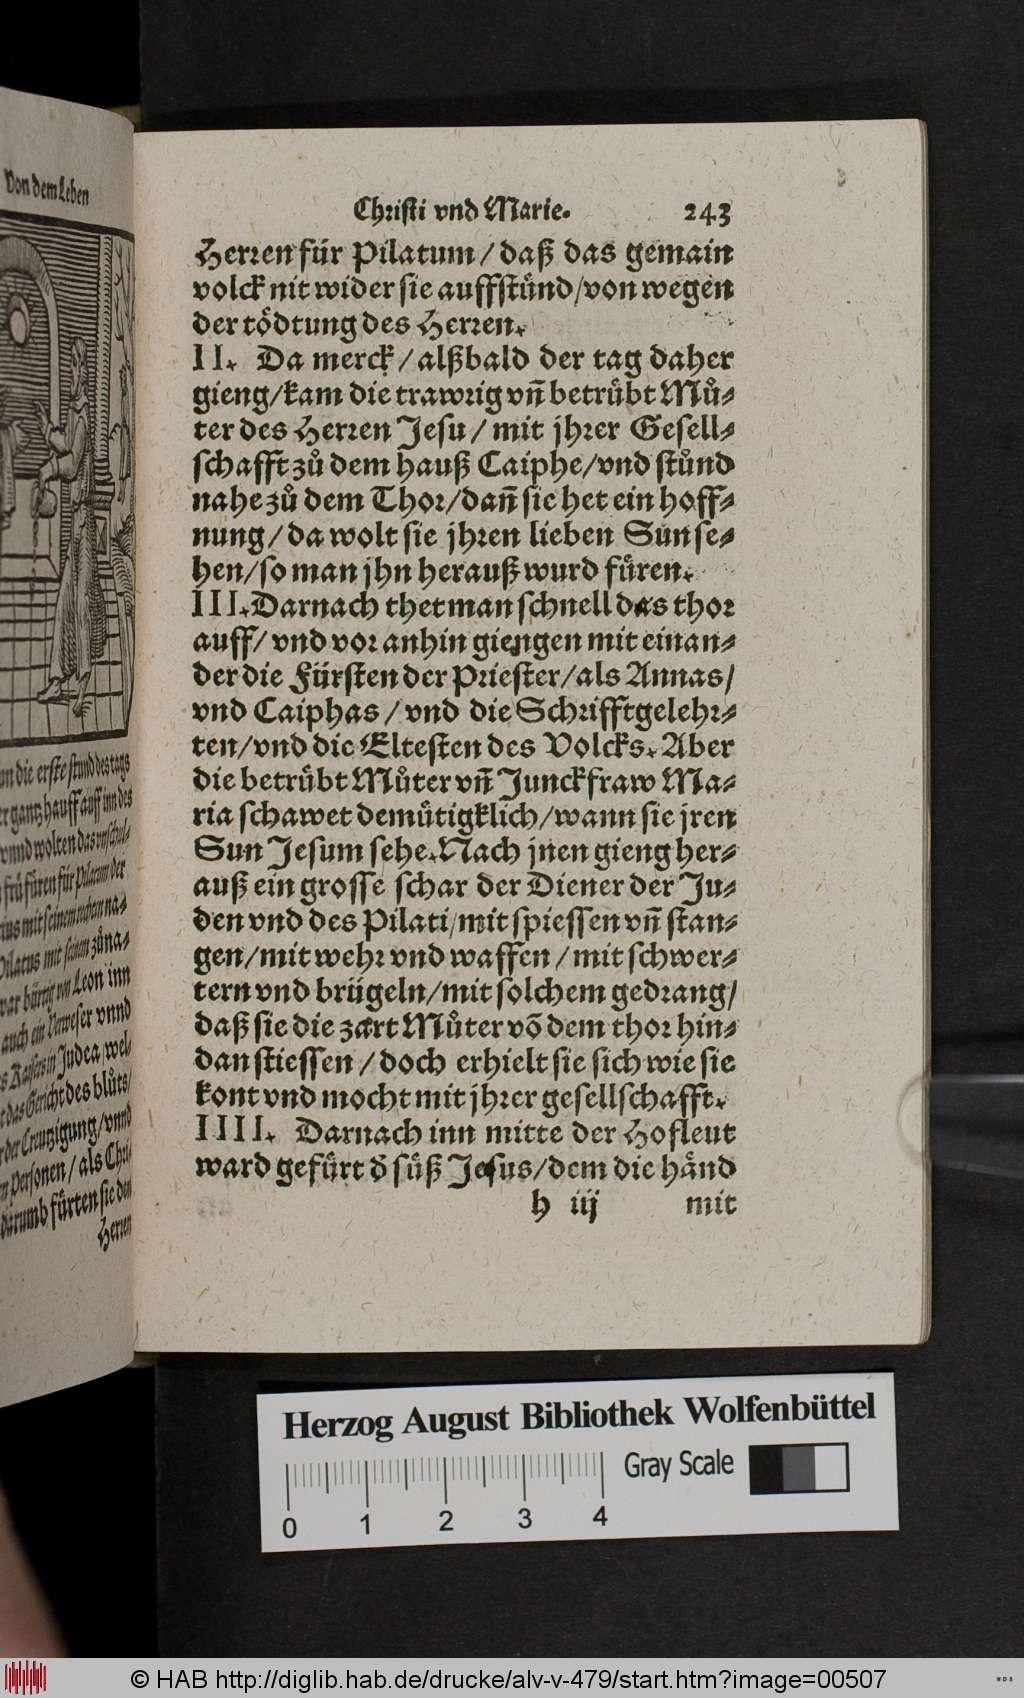 Von dem Leben
un die erste stund des tags
er gantz hauff auff inn des
vnnd wolten das vnschul-
frü füren für Pilatum der
Pilatus mit seinem zůna-
war bürtig von Leon inn
auch ein Verweser vnnd
s Kaisers in Judea / wel-
t das Gericht des blůts /
der Creutzigung / vnnd
n Personen / als Chri-
darumb fürten sie den
Herren
Christi vnd Marie. 243
Herren für Pilatum / daß das gemain
volck nit wider sie auffstünd / von wegen
der tödtung des Herren.
II. Da merck / alßbald der tag daher
gieng / kam die trawrig vñ betrübt Mů-
ter des Herren Jesu / mit jhrer Gesell-
schafft zů dem hauß Caiphe / vnd stůnd
nahe zů dem Thor / dañ sie het ein hoff-
nung / da wolt sie jhren lieben Sun se-
hen / so man jhn herauß wurd füren.
III. Darnach thet man schnell das thor
auff / vnd vor anhin giengen mit einan-
der die Fürsten der Priester / als Annas /
vnd Caiphas / vnd die Schrifftgelehr-
ten / vnd die Eltesten des Volcks. Aber
die betrübt Můter vñ Junckfraw Ma-
ria schawet demütigklich / wann sie jren
Sun Jesum sehe. Nach jnen gieng her-
auß ein grosse schar der Diener der Ju-
den vnd des Pilati / mit spiessen vñ stan-
gen / mit wehr vnd waffen / mit schwer-
tern vnd brügeln / mit solchem gedrang /
daß sie die zart Můter võ dem thor hin-
dan stiessen / doch erhielt sie sich wie sie
kont vnd mocht mit jhrer gesellschafft.
IIII. Darnach inn mitte der Hofleut
ward gefürt d̃ süß Jesus / dem die händ
h iij mit
Herzog August Bibliothek Wolfenbüttel
Gray Scale
0 1 2 3 4
© HAB http://diglib.hab.de/drucke/alv-v-479/start.htm?image=00507